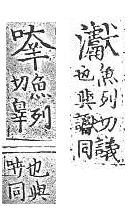 𤅊
魚列切議
也與讞同
魚列
切
也與
同